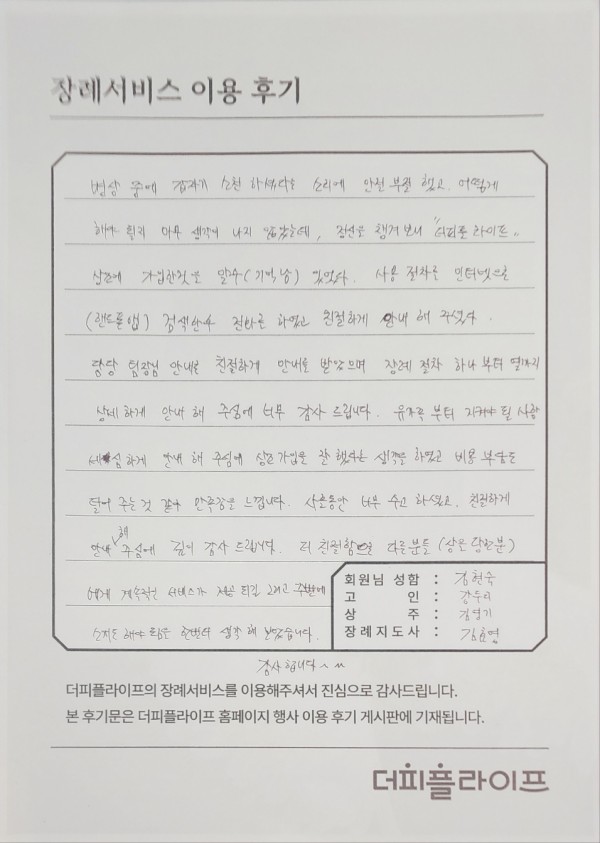 장례서비스 이용 후기
병상 중에 갑자기 소천 하셨다는 소리에 안절 부절 했고, 어떻게
해야 될지 아무 생각이 나지 않았는데, 정신을 챙겨 보니 "더피플 라이프"
상조에 가입한것을 알수(기억남) 있었다. 사용 절차를 인터넷으로
(핸드폰앱) 검색한후 전화를 하였고 친절하게 안내 해 주셨다.
담당 팀장님 안내를 친절하게 안내를 받았으며 장례 절차 하나 부터 열까지
상세하게 안내 해 주심에 너무 감사 드립니다. 유가족 부터 지켜야 될 사항
세심하게 안내 해 주심에 상조가입을 잘 했다는 생각을 하였고 비용 부담도
덜어 주는것 같아 만족감을 느낍니다. 사흘동안 너무 수고 하셨고, 친절하게
안내 해 주심에 깊이 감사 드립니다. 더 친절함으로 다른분들 (상을 당한분)
에게 계속적인 서비스가 제공 되길 그리고 주변에
소지도 해야 한번더 생각 해 보았습니다.
감사합니다 ^^
회원님 성함 : 김현숙
고 인 :
상 주 : 김영기
장례지도사 : 김효영
더피플라이프의 장례서비스를 이용해주셔서 진심으로 감사드립니다.
본 후기문은 더피플라이프 홈페이지 행사 이용 후기 게시판에 기재됩니다.
더피플라이프